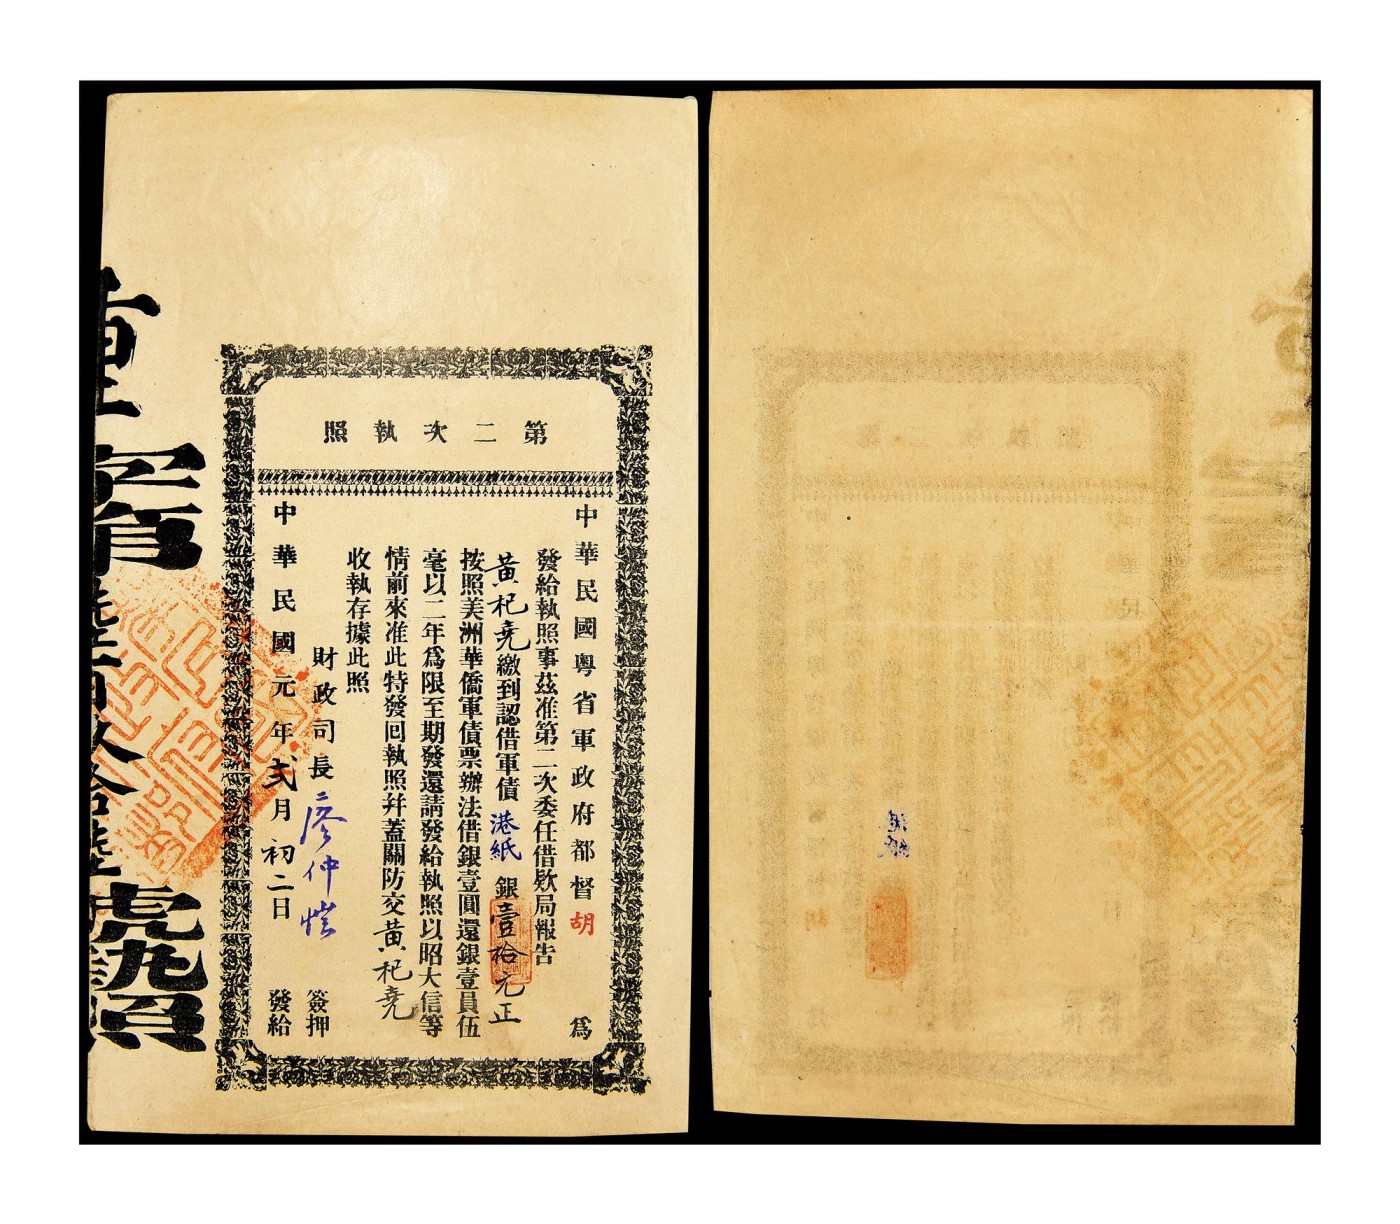 第二次執照
中華民國粵省軍政府都督胡 為
發給執照事茲准第二次委任借欵局報告
黃杞堯繳到認借軍債港紙銀壹拾元正
按照美洲華僑軍債票辦法借銀壹圓還銀壹員伍
毫以二年為限至期發還請發給執照以昭大信等
情前來准此特發回執照幷蓋關防交黃杞堯
收執存據此照
財政司長廖仲愷 簽押
中華民國元年弍月初二日 發給
字第 號執照